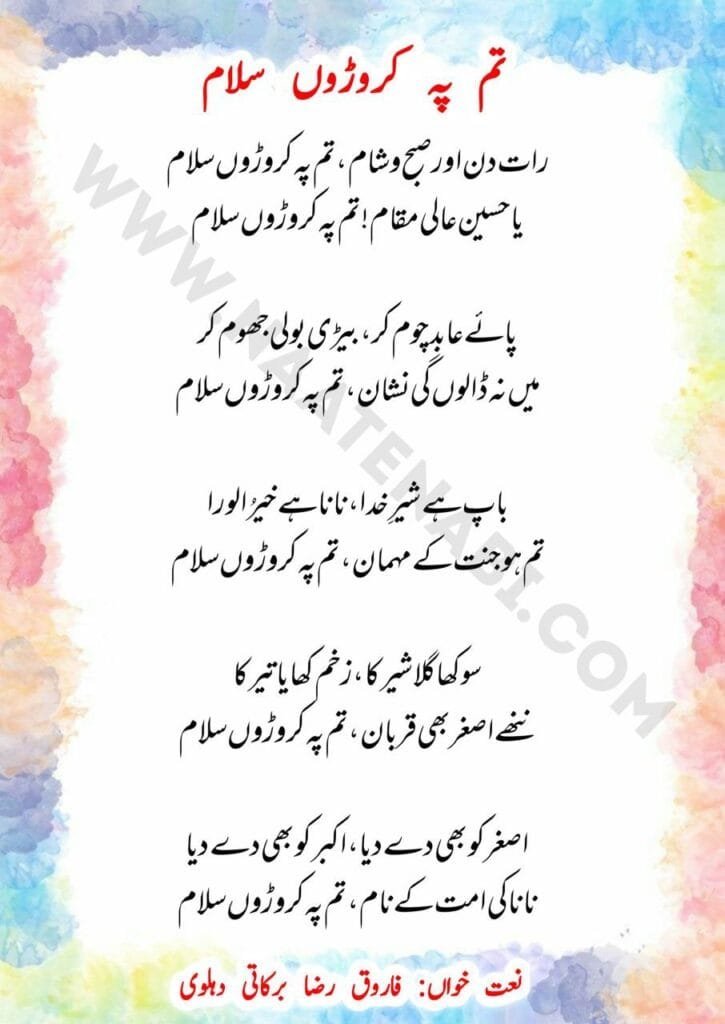 تم پہ کروڑوں سلام
رات دن اور صبح و شام، تم پہ کروڑوں سلام
یا حسین عالی مقام! تم پہ کروڑوں سلام
پائے عابد چوم کر، بیڑی بولی جھوم کر
میں نہ ڈالوں گی نشان، تم پہ کروڑوں سلام
باپ ہے شیرِ خدا، نانا ہے خیرُ الورا
تم ہو جنت کے مہمان، تم پہ کروڑوں سلام
سوکھا گلا شیر کا، زخم کھایا تیر کا
ننھے اصغر بھی قربان، تم پہ کروڑوں سلام
اصغر کو بھی دے دیا، اکبر کو بھی دے دیا
نانا کی امت کے نام، تم پہ کروڑوں سلام
نعت خواں: فاروق رضا برکاتی دہلوی
WWW.NAATENABI.COM